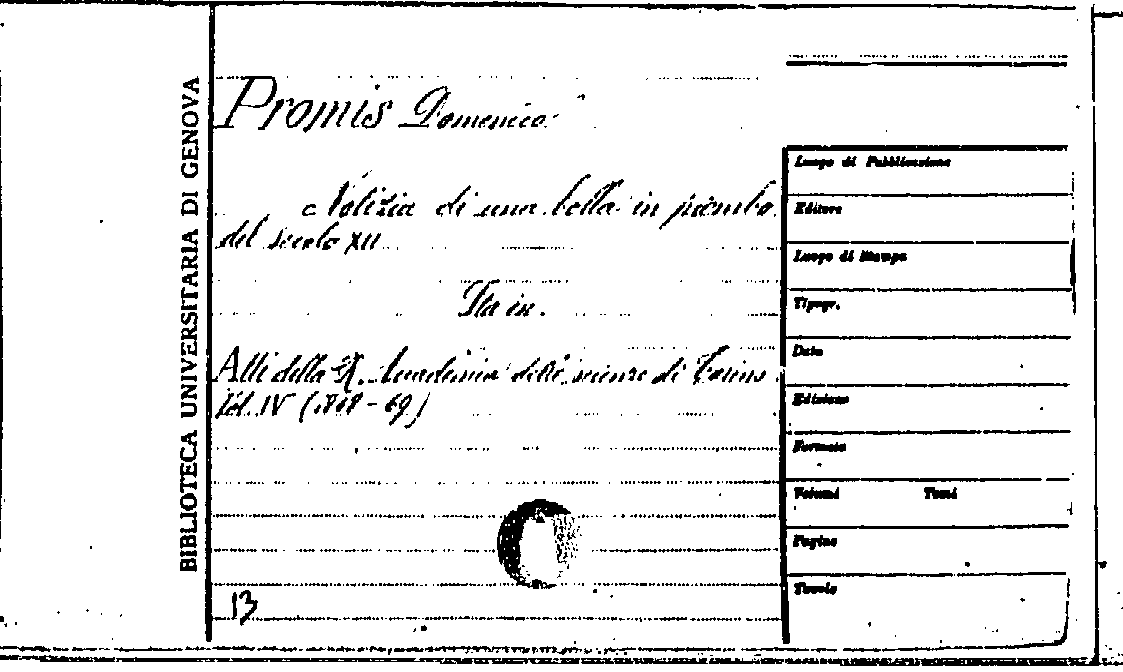 BIBLIOTECA UNIVERSITARIA DI GENOVA
Promis Domenico
Notizia di una bolla in piombo
del secolo XII
Sta in.
Atti della R. Accademia delle scienze di Torino
Vol. IV (1868-69)
13
Luogo di Pubblicazione
Editore
Luogo di Stampa
Tipogr.
Data
Edizione
Formato
Volumi Tomi
Pagine
Tavole